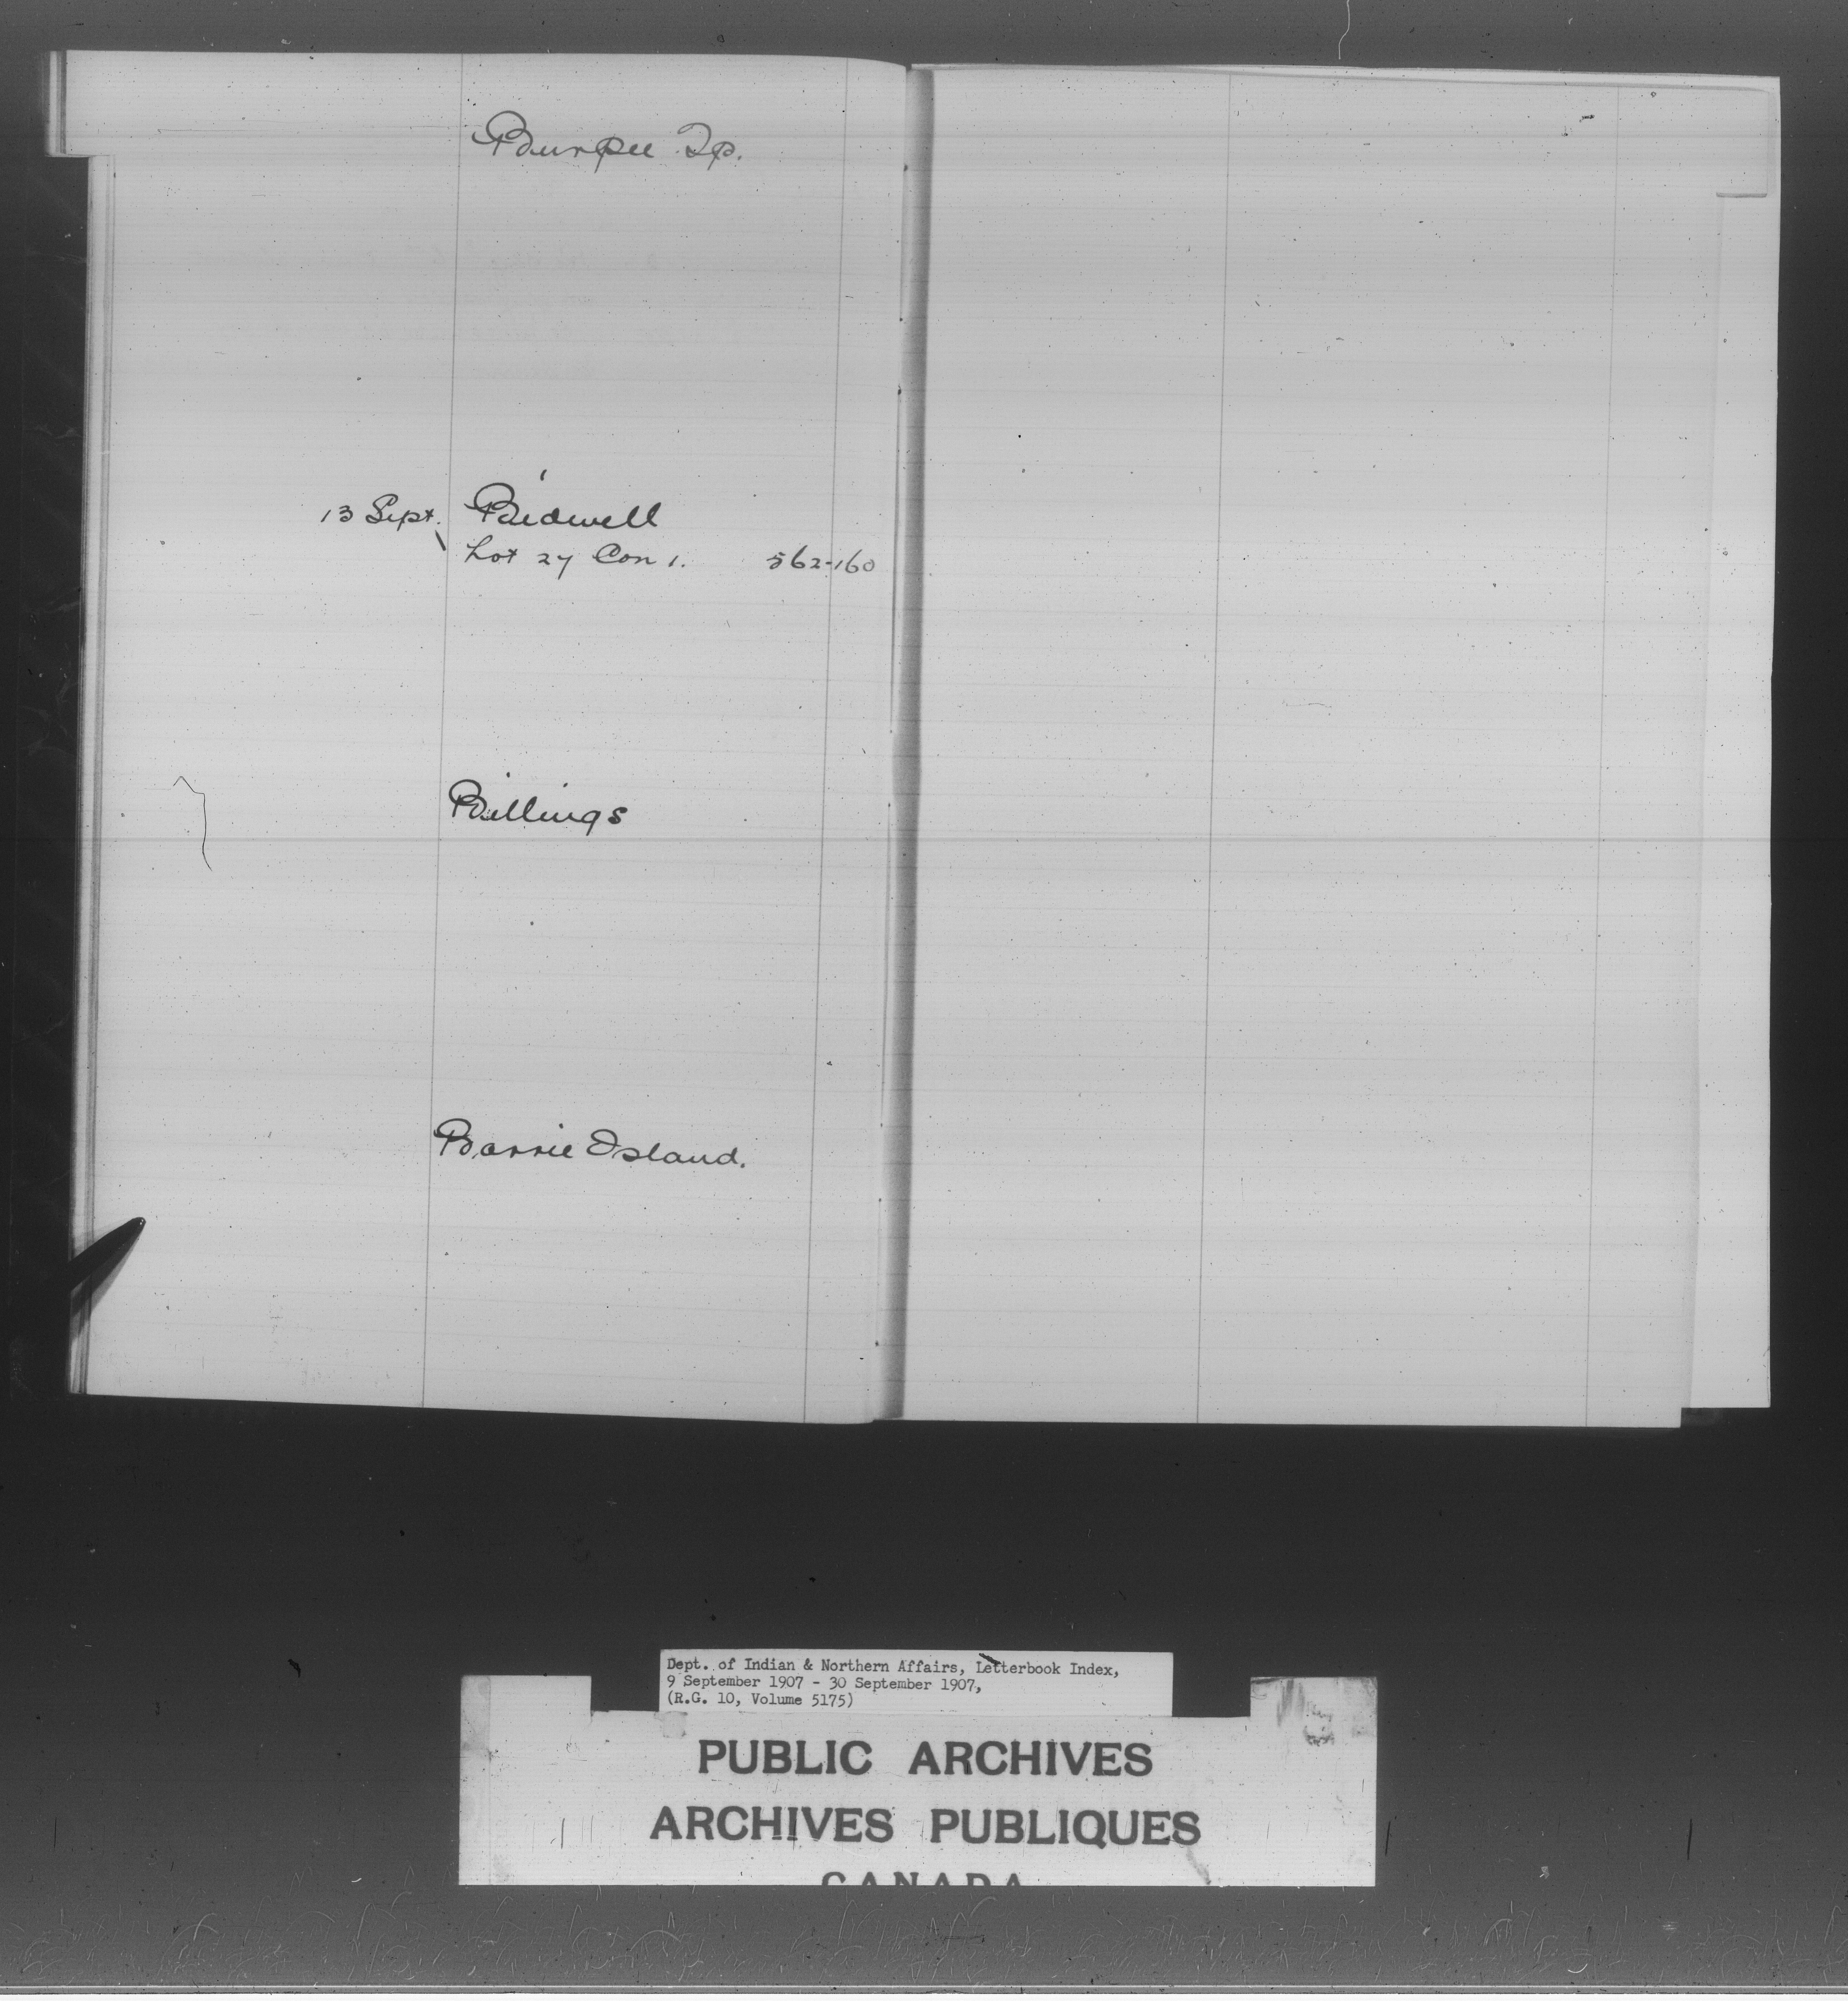 Burpee Tp.
13 Sept. Bidwell
Lot 27 Con 1. 562-160
Billings
Barrie Island.
Dept. of Indian & Northern Affairs, Letterbook Index,
9 September 1907 - 30 September 1907,
(R.G. 10, Volume 5175)
PUBLIC ARCHIVES
ARCHIVES PUBLIQUES
CANADA